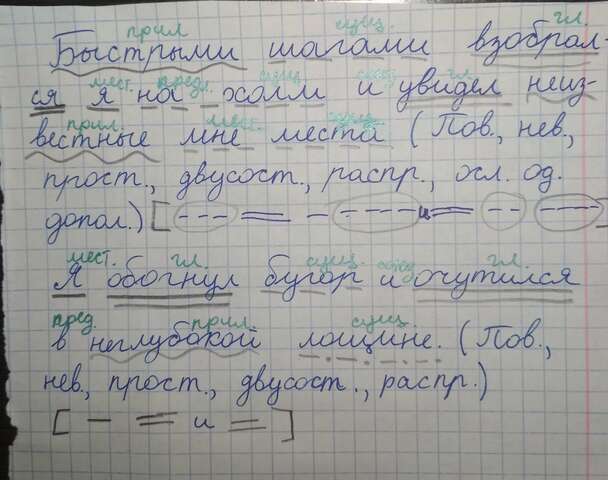 прил. сущ. гл.
Быстрыми шагами взобрал-
мест. предл. сущ. союз гл.
ся я на холм и увидел неиз-
прил. мест. сущ.
вестные мне места (Пов., нев.,
прост., двусост., распр., осл. од.
допол.) [--- = - ---- и = -- ----]
мест. гл. сущ. союз гл.
Я обогнул бугор и очутился
пред. прил. сущ.
в неглубокой лощине. (Пов.,
нев., прост., двусост., распр.)
[ — = и = ]